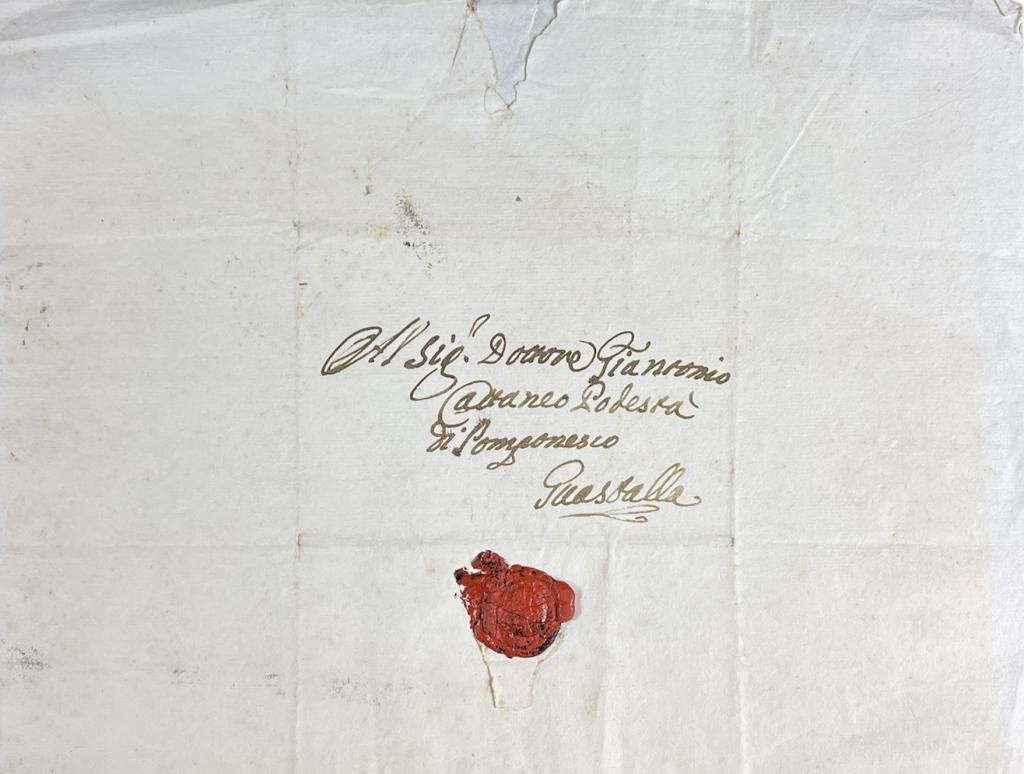 Al Sig.r Dottore Giantonio
Cattaneo Podestà
di Pomponesco
Guastalla